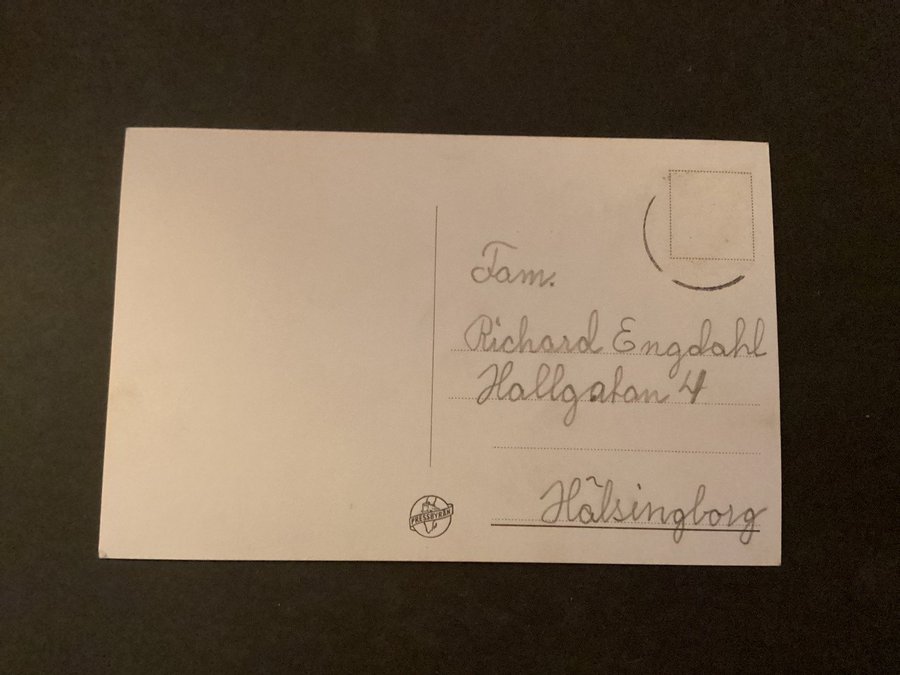 Fam.
Richard Engdahl
Hallgatan 4
Hälsingborg
PRESSBYRÅN